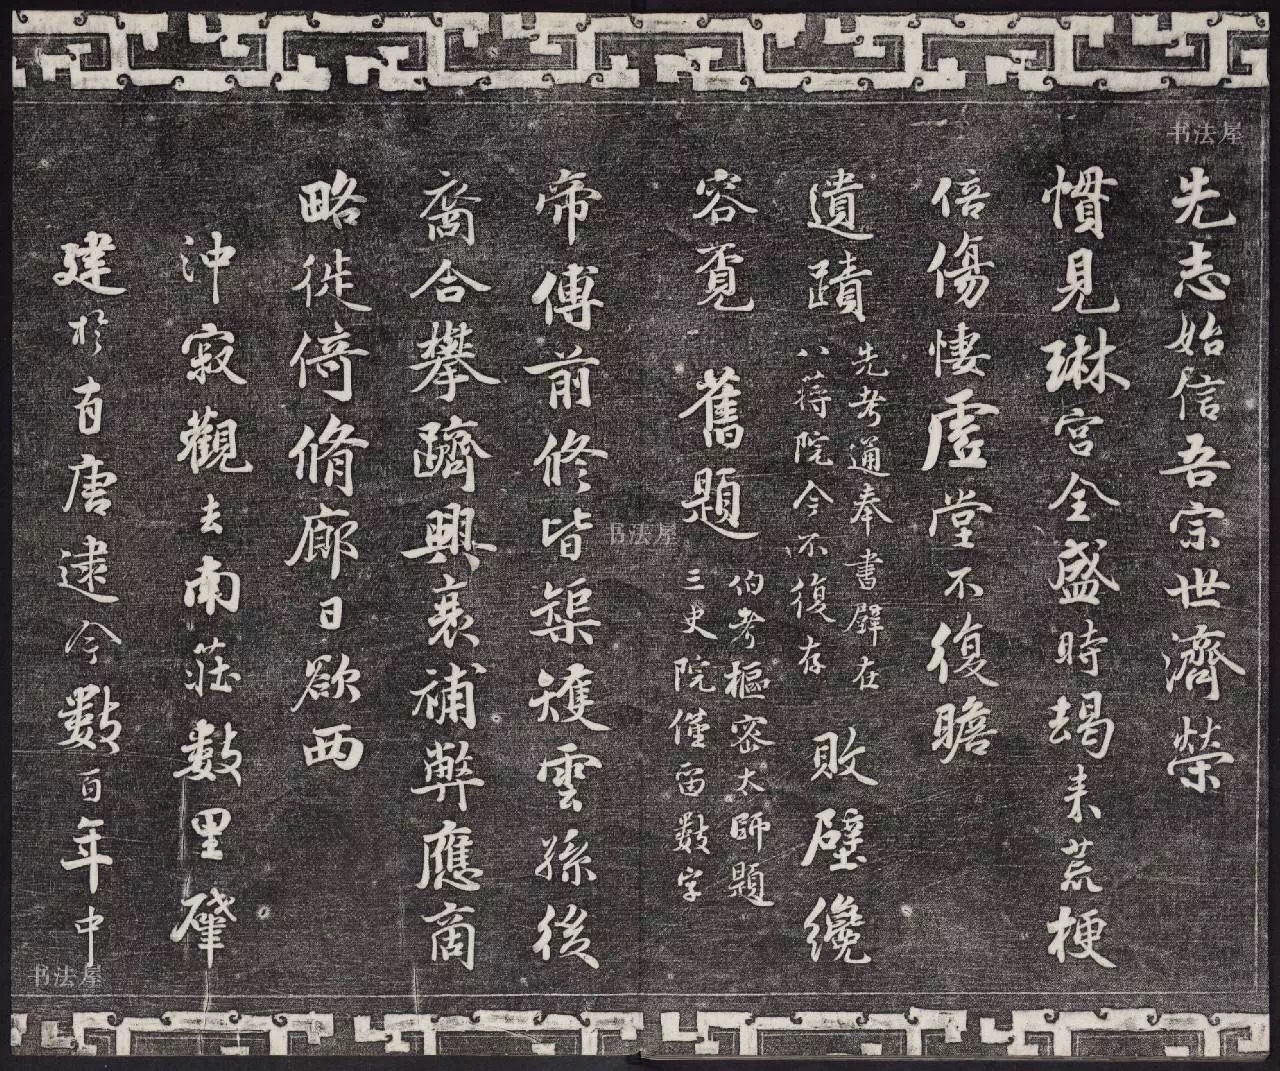 先志始信吾宗世濟榮
慣見琳宮全盛時朅来荒梗
倍傷悽虛堂不復瞻
遺蹟
先考通奉書壁在
八蔣院今不復存
敗壁纔
容覔
舊題
伯考樞密太師題
三史院僅留數字
帝傅前修皆榘矱雲孫後
裔合攀躋興衰補弊應商
略徙倚脩廊日欲西
沖寂觀去南莊數里肇
建於有唐逮今數百年中
书法屋
书法屋
书法屋